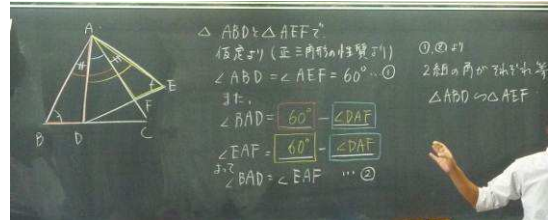 A
E
F
B
D
C
△ABDと△AEFで
仮定より(正三角形の性質より)
∠ABD=∠AEF=60°…①
また、
∠BAD=60°-∠DAF
∠EAF=60°-∠DAF
よって
∠BAD=∠EAF …②
①,②より
2組の角がそれぞれ等
△ABD∽△AEF